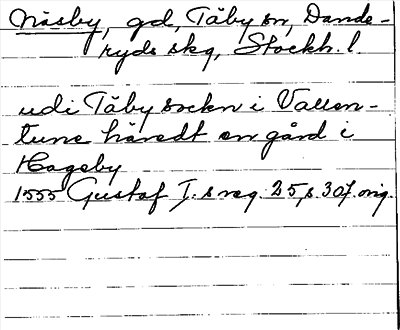 Näsby, gd, Täby sn, Dande-
ryds skg, Stockh. l.
udi Täby sockn i Vallen-
tune häredt en gård i
Hageby
1555 Gustaf I:s reg. 25, s. 307. orig.